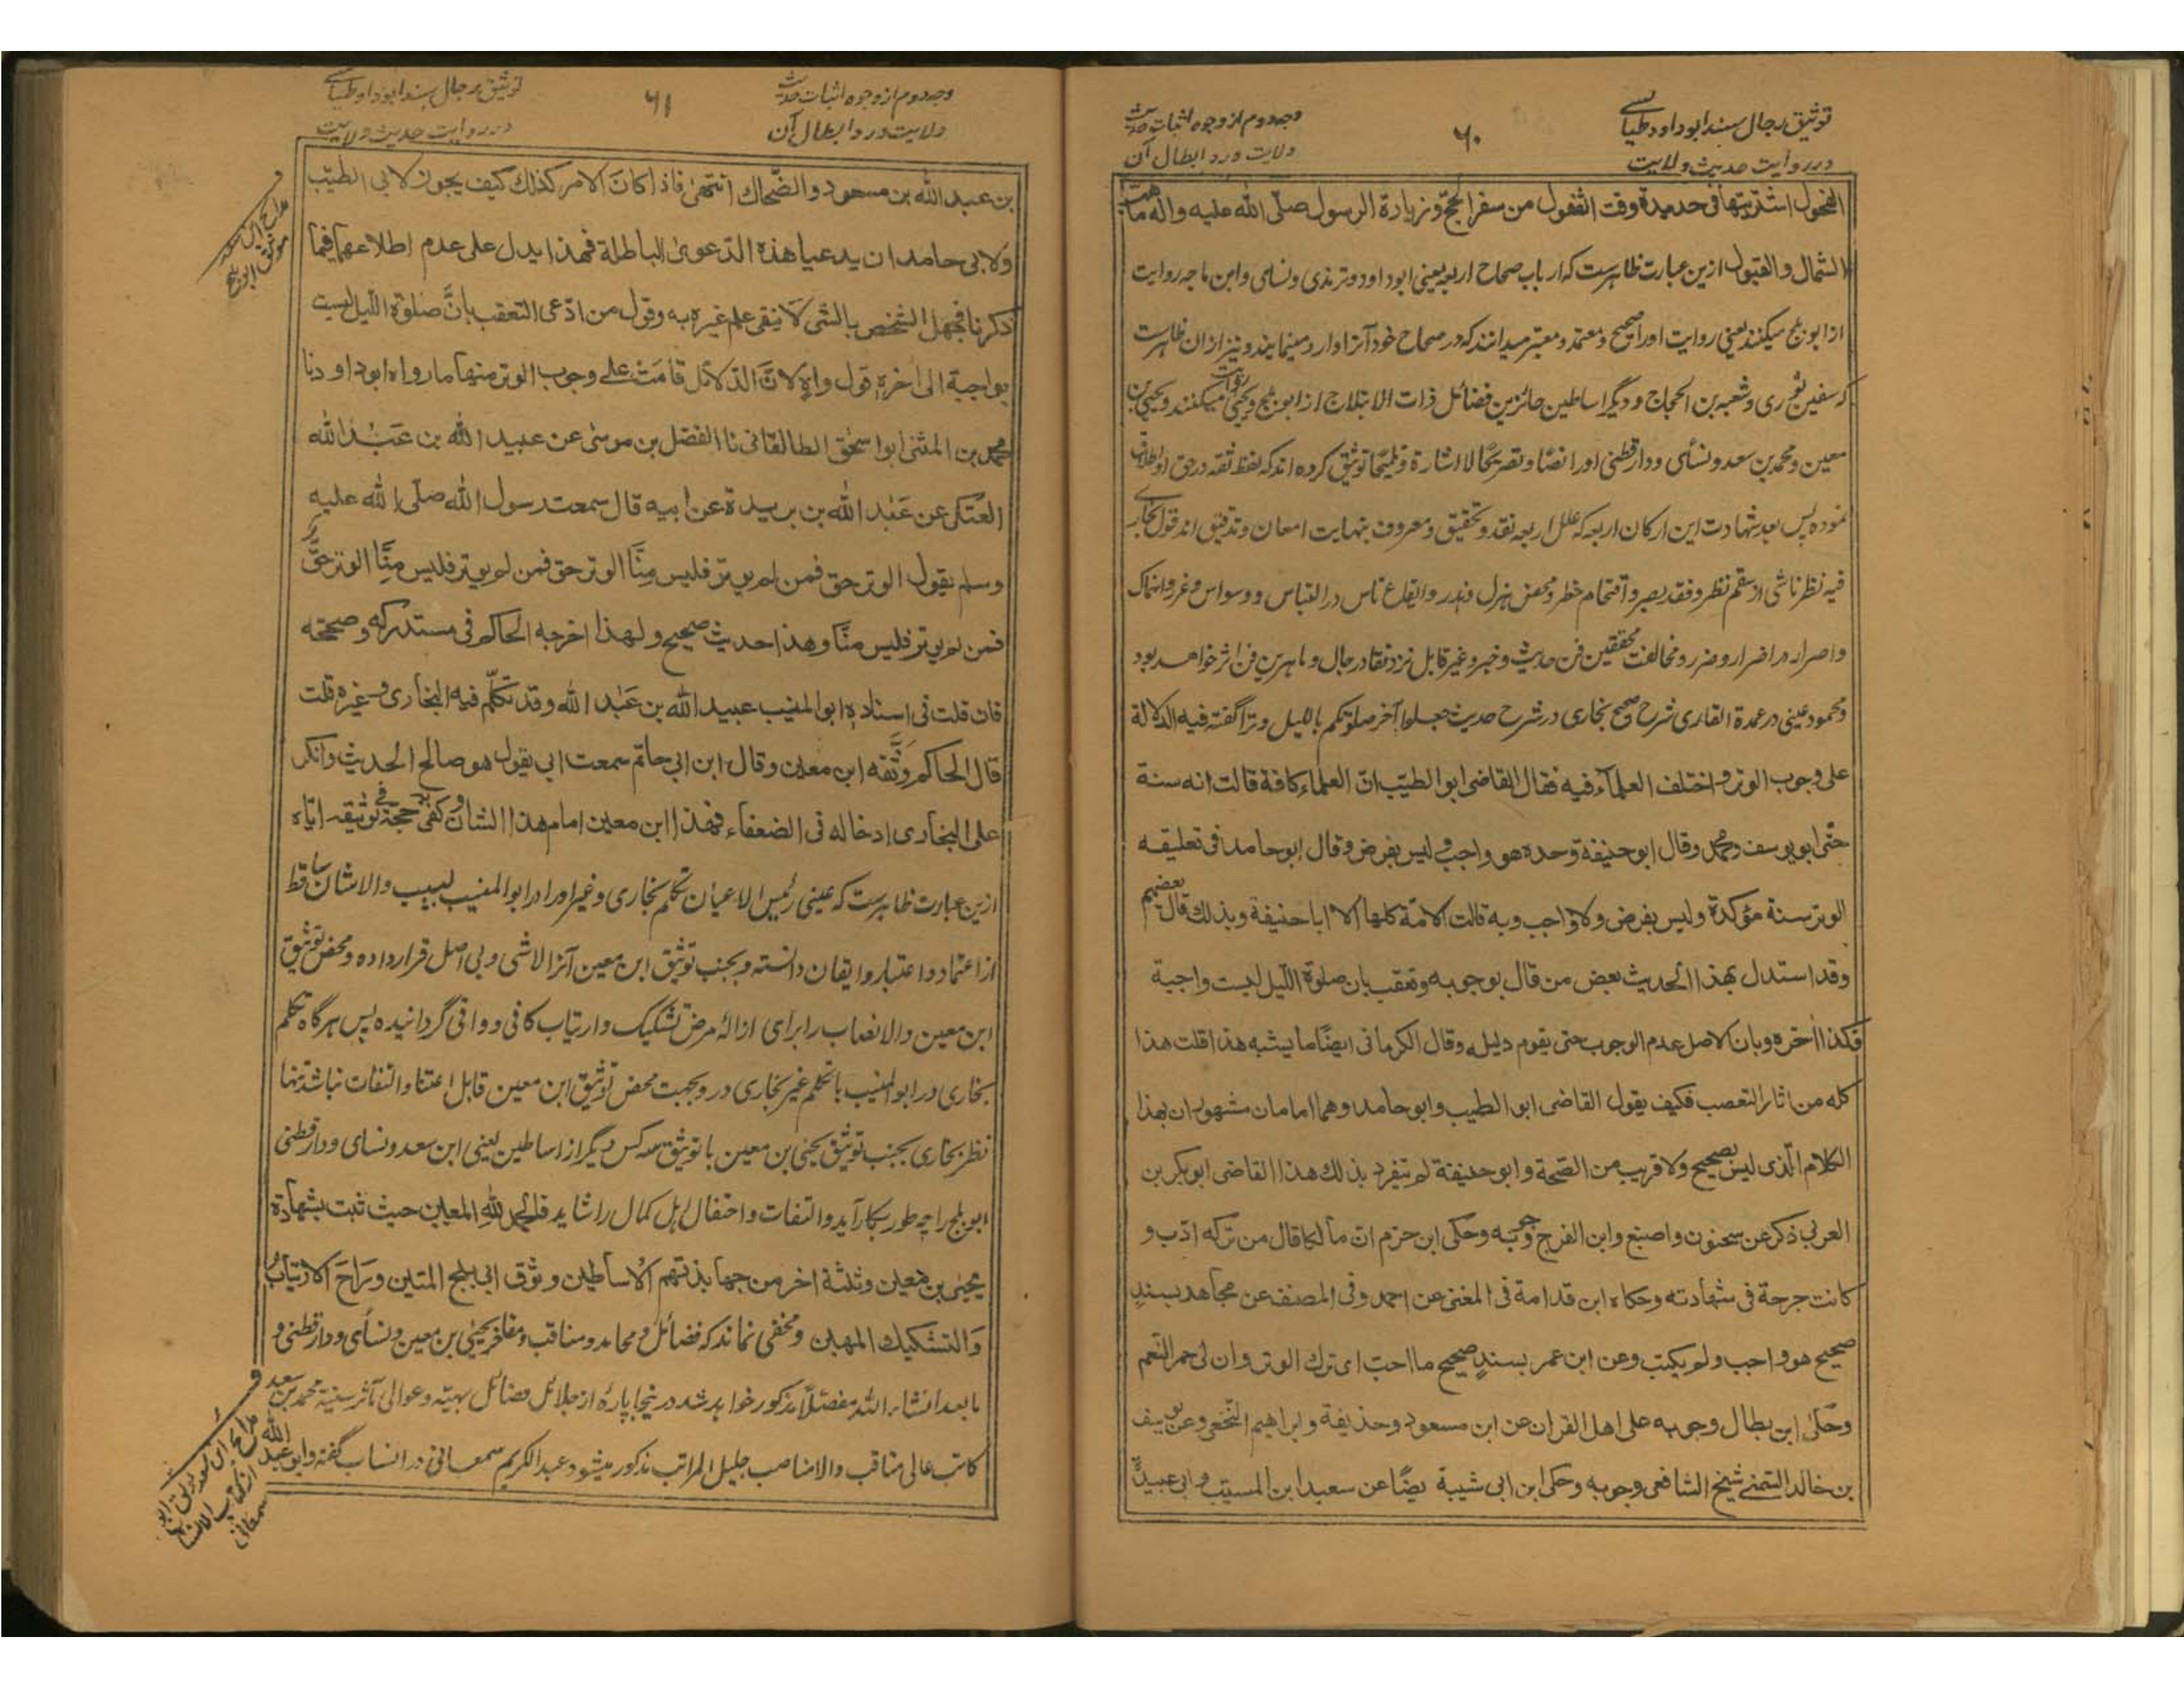 توثیق رجال سند ابوداود طیالسی
در روایت حدیث ولایت
۶۰
وجه دوم از وجوه اثبات حدیث
ولایت ورد ابطال آن
الفحول اشتریتها فی حدیدة وقت القفول من سفر الحج وزیارة الرسول صلّی الله علیه واله ما هبت
الشمال والقبول ازین عبارت ظاهرست که ارباب صحاح اربعه یعنی ابوداود وترمذی ونسای وابن ماجه روایت
از ابو بلج میکنند یعنی روایت اورا صحیح ومعتمد ومعتبر میدانند که در صحاح خود آنرا وارد مینمایند ونیز ازان ظاهرست
که سفین ثوری وشعبه بن الحجاج ودیگر اساطین حائزین فضائل ذات الابتلاج از ابو بلج ویحیی روایت میکنند ویحیی بن
معین ومحمد بن سعد ونسأی ودارقطنی اورا نصًا وتصریحًا لا اشارة وتلمیحًا توثیق کرده اند که لفظ ثقه در حق او اطلاق
نموده پس بعد شهادت این ارکان اربعه که علل اربعه نقد وتحقیق ومعروف بنهایت امعان وتدقیق اند قول بخاری
فیه نظر ناشی از سقم نظر وفقد بصر واقتحام خطر ومحض هزل وهذر وایقاع ناس در التباس ووسواس وغرر وانهماک
واصرار در اضرار وضرر ومخالفت محققین فن حدیث وخبر وغیر قابل نزد نقاد رجال وماهرین فن اثر خواهد بود
ومحمود عینی در عمدة القاری شرح صحیح بخاری در شرح حدیث جعلوا آخر صلوتکم باللیل وترا گفته فیه الدلالة
علی وجوب الوتر واختلف العلمآء فیه فقال القاضی ابو الطیّب انّ العلماء کافة قالت انه سنة
حتّی ابو یوسف ومحمد وقال ابو حنیفة وحده هو واجب ولیس بفرض وقال ابو حامد فی تعلیقه
الوتر سنة مؤکدة ولیس بفرض ولا واجب وبه قالت الامّة کلها الا ابا حنیفة وبذلك قال بعضهم
وقد استدل بهذا الحدیث بعض من قال بوجوبه وتعقب بان صلوة اللیل لیست واجبة
فکذا اخره وبان الاصل عدم الوجوب حتی یقوم دلیله وقال الکرمانی ایضًا ما یشبه هذا قلت هذا
کله من اثار التعصب فکیف یقول القاضی ابو الطیب وابو حامد وهما امامان مشهوران بهذا
الکلام الّذی لیس بصحیح ولا قریب من الصّحة وابو حنیفة لم یتفرد بذلك هذا القاضی ابو بکر بن
العربی ذکر عن سحنون واصبغ وابن الفرج وجوبه وحکی ابن حزم انّ مالکا قال من ترکه ادّب و
کانت جرحة فی شهادته وحکاه ابن قدامة فی المغنی عن احمد وفی المصنف عن مجاهد بسند
صحیح هو واجب ولم یکتب وعن ابن عمر بسند صحیح ما احب ای ترك الوتر وان لی حمر النّعم
وحکی ابن بطال وجوبه علی اهل القران عن ابن مسعود وحذیفة وابراهیم النّخعی وعن یوسف
بن خالد التمتی شیخ الشافعی وجوبه وحکی ابن ابی شیبة ایضًا عن سعید ابن المسیّب وابی عبیدة
توثیق رجال سند ابوداود طیالسی
در روایت حدیث ولایت
۶۱
وجه دوم از وجوه اثبات حدیث
ولایت ورد ابطال آن
بن عبد الله بن مسعود والضّحاك انتهی فاذا کان الامر کذلك کیف یجوز لابی الطیّب
ولابی حامد ان یدعیا هذه الدّعوی الباطلة فهذا یدل علی عدم اطلاعهما فیما
ذکرنا فجهل الشخص بالشی لا ینفی علم غیره به وقول من ادّعی التعقب بانّ صلوة اللیل لیست
بواجبة الی اخره قول واهٍ لانّ الدّلائل قامت علی وجوب الوتر منها ما رواه ابو داود نا
محمد بن المثنی ابو اسحٰق الطالقانی نا الفضل بن موسی عن عبید الله بن عبد الله
العتکی عن عبد الله بن بریدة عن ابیه قال سمعت رسول الله صلّی الله علیه
وسلم یقول الوتر حق فمن لم یوتر فلیس منّا الوتر حق فمن لم یوتر فلیس منّا الوتر حقّ
فمن لم یوتر فلیس منّا وهذا حدیث صحیح ولهذا اخرجه الحاکم فی مستدرکه وصحّحه
فان قلت فی اسناده ابو المنیب عبید الله بن عبد الله وقد تکلّم فیه البخاری وغیره قلت
قال الحاکم وثّقه ابن معین وقال ابن ابی حاتم سمعت ابی یقول هو صالح الحدیث وانکر
علی البخاری ادخاله فی الضعفاء فهذا ابن معین امام هذا الشان وکفی به حجة فی توثیقه ایّاه
ازین عبارت ظاهرست که عینی رئیس الاعیان تکلم بخاری وغیر اورا در ابو المنیب لبیب والاشان ساقط
از اعتماد واعتبار وایقان دانسته وبجنب توثیق ابن معین آنرا لاشی وبی اصل قرار داده ومحض توثیق
ابن معین والانصاب را برای ازالهٔ مرض تشکیک وارتیاب کافی ووافی گردانیده پس هرگاه تکلم
بخاری در ابو المنیب با تکلم غیر بخاری در وبجنب محض توثیق ابن معین قابل اعتنا والتفات نباشد تنها
نظر بخاری بجنب توثیق یحیی بن معین با توثیق سه کس دیگر از اساطین یعنی ابن سعد ونسای ودارقطنی
ابو بلج را چه طور بکار آید والتفات واحتفال اهل کمال را شاید فالحمد لله المعین حیث ثبت بشهادة
یحیی بن معین وثلثة اخر من جهابذتهم الاساطین وثوق ابی بلج المتین وراح الارتیاب
والتشکیك المهین ومخفی نماند که فضائل ومحامد ومناقب ومفاخر یحیی بن معین ونسأی ودارقطنی و
ما بعد انشاء الله مفصّلًا مذکور خواهد شد در ینجا پارهٔ از جلائل فضائل بهیّه وعوالی مآثر سنیّه محمد بن سعد
کاتب عالی مناقب والامناصب جلیل المراتب مذکور میشود عبد الکریم سمعانی در انساب گفته وابو عبد الله
مدائح ابن سعد
موثق ابو بلج
مدائح ابن سعد موثق ابو بلج
از کتاب الانساب
سمعانی